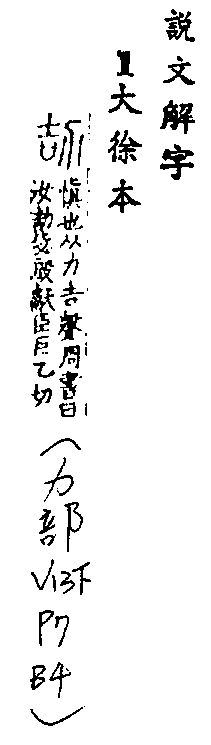 說文解字
1大徐本
劼
慎也从力吉聲周書曰
汝劼毖殷獻臣巨乙切
(力部
V13下
P7
B4)